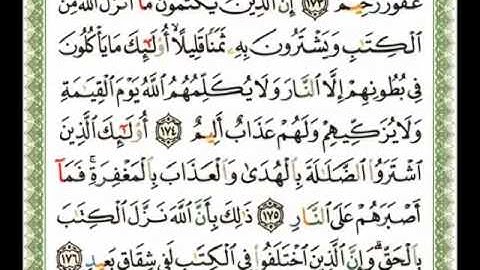 غَفُورٌ رَّحِيمٌ ١٧٣ إِنَّ ٱلَّذِينَ يَكْتُمُونَ مَآ أَنزَلَ ٱللَّهُ مِنَ
ٱلْكِتَٰبِ وَيَشْتَرُونَ بِهِۦ ثَمَنًا قَلِيلًا أُو۟لَٰٓئِكَ مَا يَأْكُلُونَ
فِى بُطُونِهِمْ إِلَّا ٱلنَّارَ وَلَا يُكَلِّمُهُمُ ٱللَّهُ يَوْمَ ٱلْقِيَٰمَةِ
وَلَا يُزَكِّيهِمْ وَلَهُمْ عَذَابٌ أَلِيمٌ ١٧٤ أُو۟لَٰٓئِكَ ٱلَّذِينَ
ٱشْتَرَوُا۟ ٱلضَّلَٰلَةَ بِٱلْهُدَىٰ وَٱلْعَذَابَ بِٱلْمَغْفِرَةِ ۚ فَمَآ
أَصْبَرَهُمْ عَلَى ٱلنَّارِ ١٧٥ ذَٰلِكَ بِأَنَّ ٱللَّهَ نَزَّلَ ٱلْكِتَٰبَ
بِٱلْحَقِّ ۗ وَإِنَّ ٱلَّذِينَ ٱخْتَلَفُوا۟ فِى ٱلْكِتَٰبِ لَفِى شِقَاقٍۭ بَعِيدٍ ١٧٦